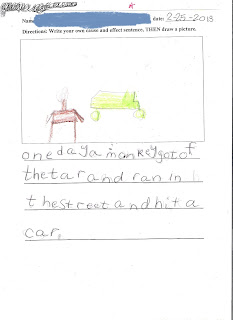 Name date: 2-25-2013
Directions: Write your own cause and effect sentence, THEN draw a picture.
one day a mankey got of
the tar and ran in
the street and hit a
car.